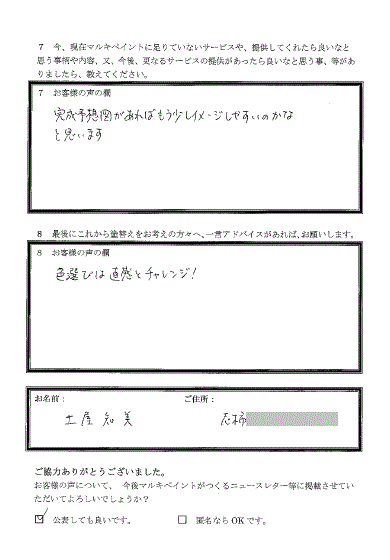 7 今、現在マルキペイントに足りていないサービスや、提供してくれたら良いなと
思う事柄や内容、又、今後、更なるサービスの提供があったら良いなと思う事、等があ
りましたら、教えてください。
7 お客様の声の欄
完成予想図があればもう少しイメージしやすいのかな
と思います
8 最後にこれから塗替えをお考えの方々へ、一言アドバイスがあれば、お願いします。
8 お客様の声の欄
色選びは直感とチャレンジ!
お名前: ご住所:
土屋 知美
ご協力ありがとうございました。
お客様の声について、今後マルキペイントがつくるニュースレター等に掲載させてい
ただいてよろしいでしょうか?
☑ 公表しても良いです。 □ 匿名ならOKです。